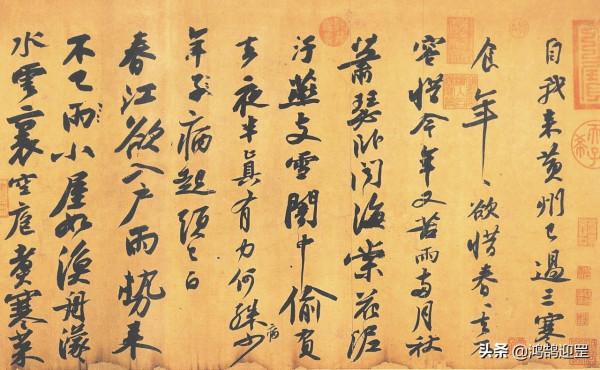 自我来黄州已過三寒
食年〻欲惜春〻去不
容惜今年又苦雨兩月秋
蕭瑟卧聞海棠花泥
汙燕支雪闇中偷負
去夜半真有力何殊少
病
年子病起須已白
春江欲入户雨勢来
不已雨小屋如漁舟濛〻
水雲裏空庖煮寒菜
头条 @鸿鹄迎罡